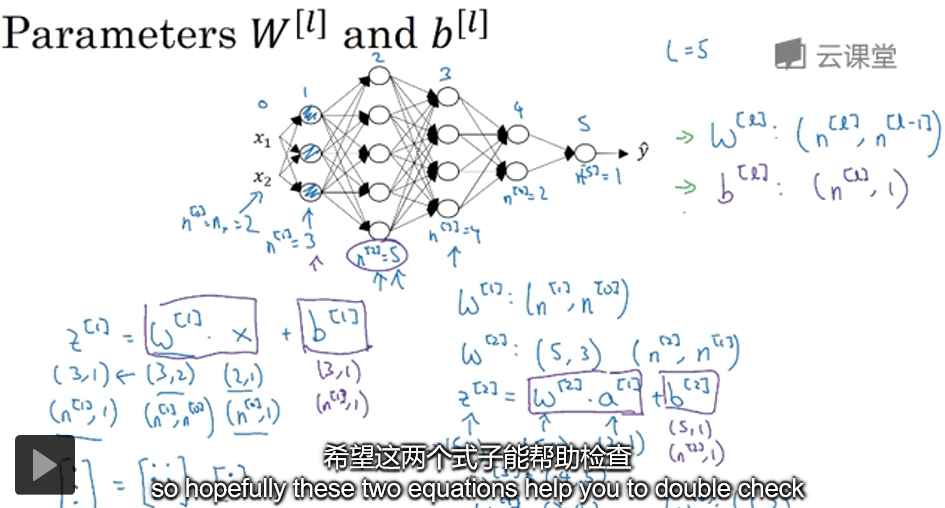 Parameters W^[l] and b^[l]
L=5
云课堂
0 1 2 3 4 5
x₁
x₂
ŷ
n^[0]=nₓ=2
n^[1]=3
n^[2]=5
n^[3]=4
n^[4]=2
n^[5]=1
→ W^[l]: (n^[l], n^[l-1])
→ b^[l]: (n^[l], 1)
z^[1] = W^[1] · x + b^[1]
(3,1) ← (3,2) (2,1) (3,1)
(n^[1],1) (n^[1],n^[0]) (n^[0],1) (n^[1],1)
W^[1]: (n^[1], n^[0])
W^[2]: (5,3) (n^[2], n^[1])
z^[2] = W^[2] · a^[1] + b^[2]
(5,1)
(n^[2],1)
希望这两个式子能帮助检查
so hopefully these two equations help you to double check